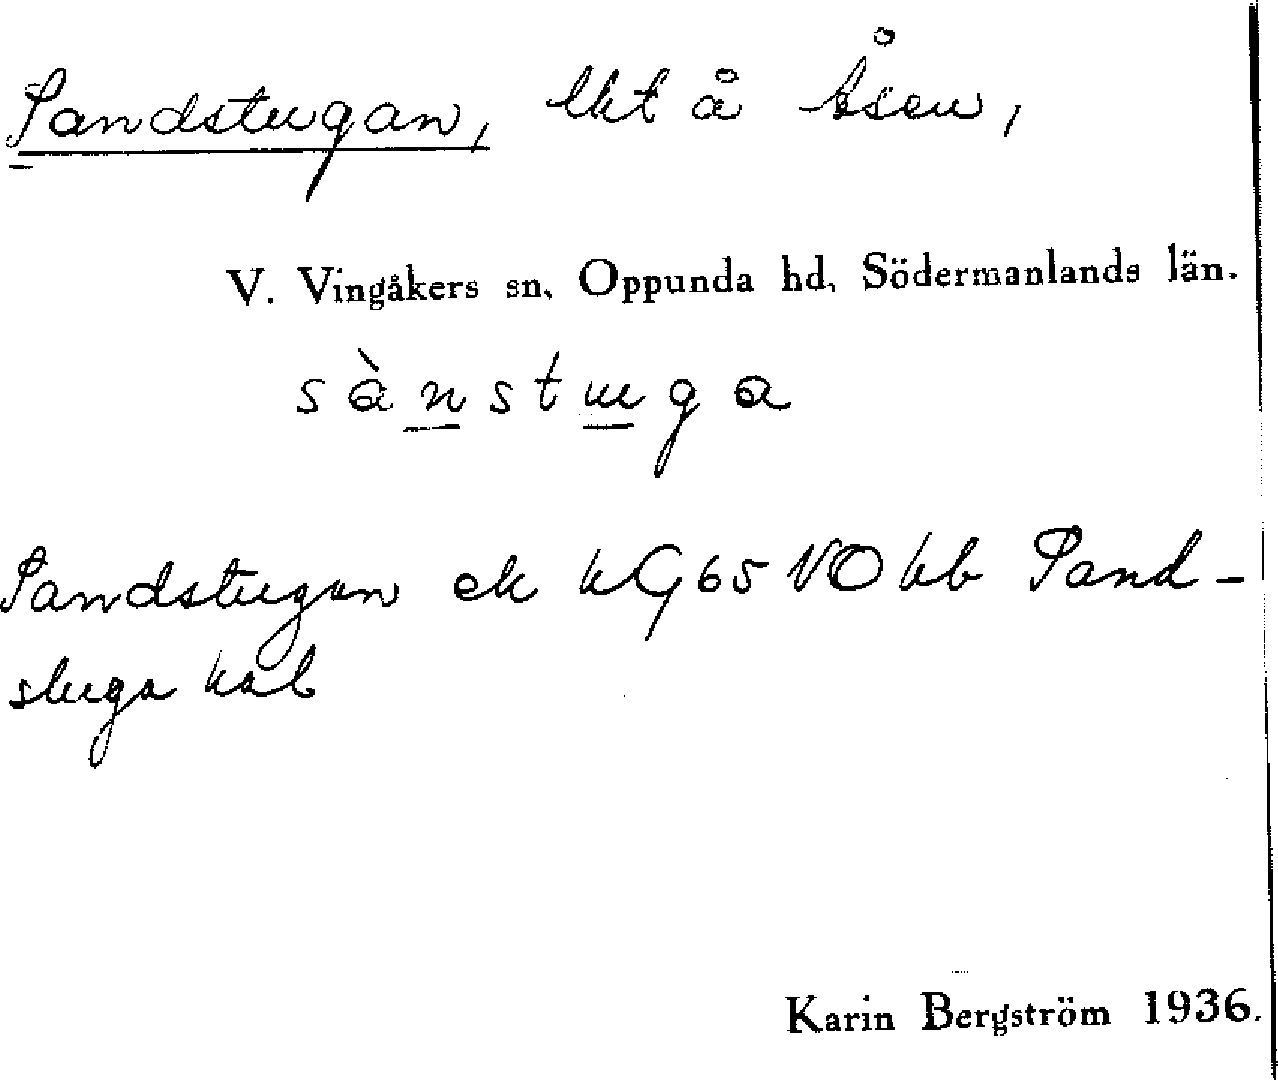 Sandstugan, lht å Åsen,
V. Vingåkers sn, Oppunda hd, Södermanlands län.
sànstuga
Sandstugan ek kG 65 NO kb Sand-
stuga hab
Karin Bergström 1936.